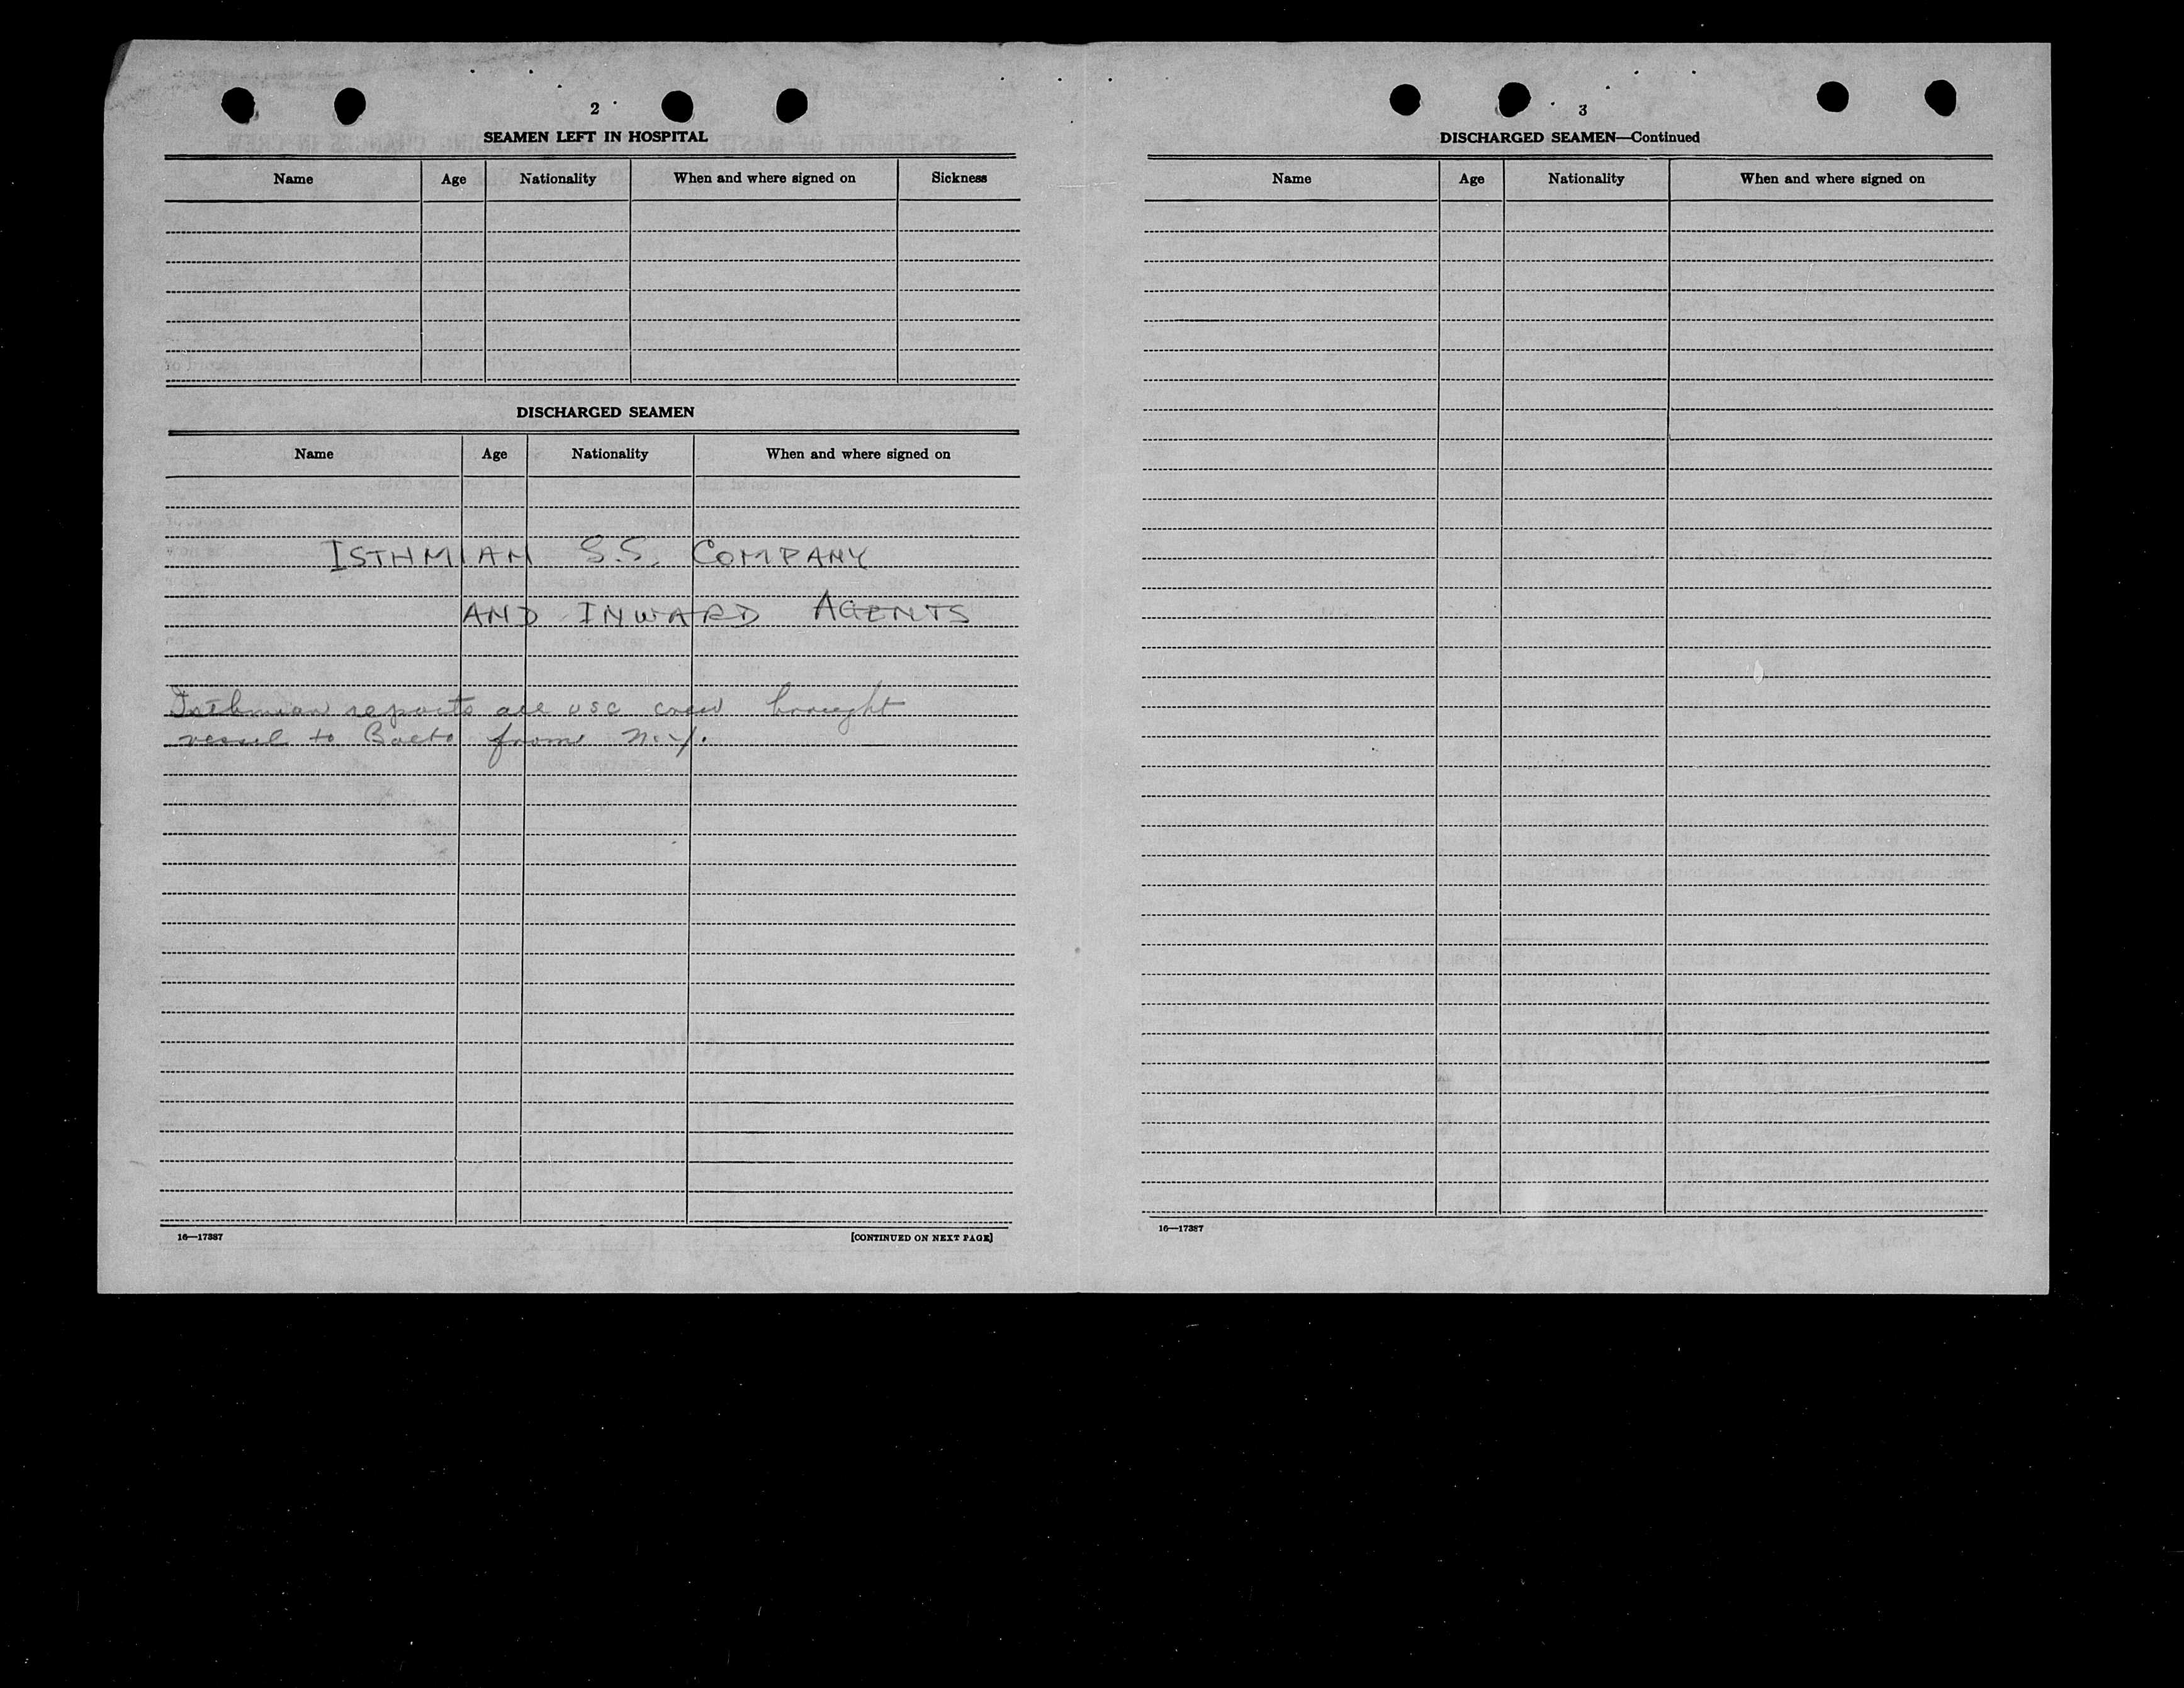 2
SEAMEN LEFT IN HOSPITAL
Name Age Nationality When and where signed on Sickness
DISCHARGED SEAMEN
Name Age Nationality When and where signed on
ISTHMIAN S.S. COMPANY
AND INWARD AGENTS
Isthmian reports all USC crew brought
vessel to Balto from N.Y.
16—17387 [CONTINUED ON NEXT PAGE]
3
DISCHARGED SEAMEN—Continued
Name Age Nationality When and where signed on
16—17387